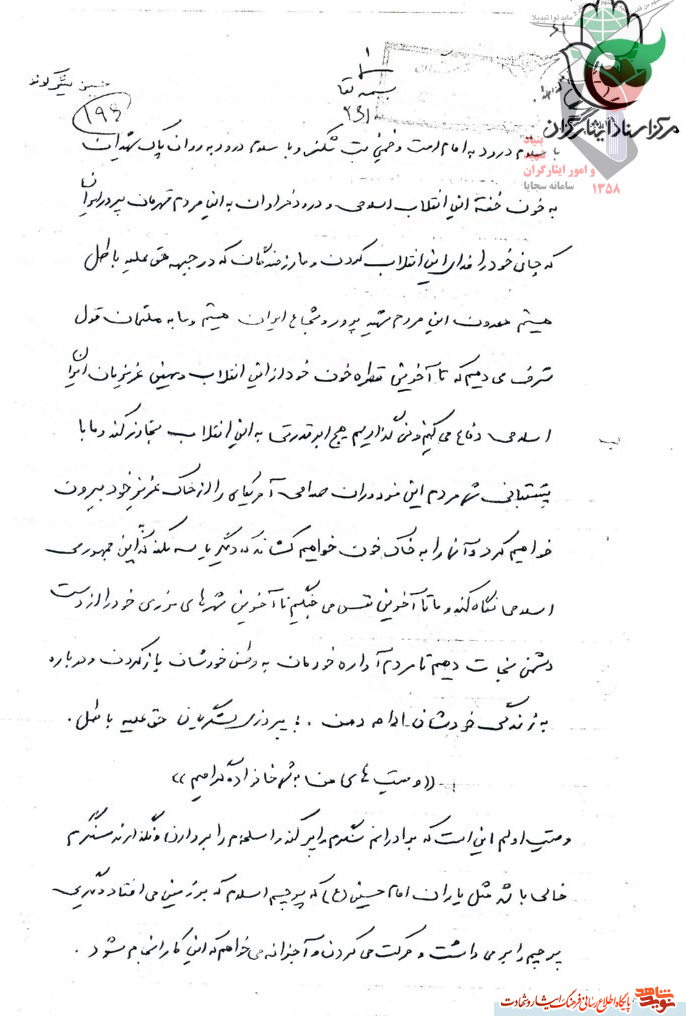 بسمه تعا
۲۶۱
حسین لشگرلوند
۱۹۶
مرکز اسناد ایثارگران
بنیاد
شهید
و امور ایثارگران
سامانه سجایا
۱۳۵۸
با سلام درود به امام امت و خمینی بت شکن و با سلام درود به روان پاک شهیدان
به خون خفتة این انقلاب اسلامی و درود فراوان به این مردم قهرمان پرور ایران
که جانی خود را فدای این انقلاب کردن و ما رزمندگان که در جبهه حق علیه باطل
هیستم ممدون این مردم شهید پرور و شجاع ایران هیستم و ما به ملتمان قول
شرف می دهیم که تا آخرین قطره خون خود از این انقلاب و میهن عزیزمان ایران
اسلامی دفاع می کنیم و نمی گذاریم هیچ ابر قدرتی به این انقلاب تجاوز کند و ما با
پشتبانی شما مردم این مزدوران صدامی آمریکای را از خاک عزیز خود بیرون
خواهیم کرد و آنها را به خاک خون خواهیم کشاند که دیگر یا سه نکند که به این جمهوری
اسلامی نگاه کند و ما تا آخرین نفس می جنگیم تا آخرین شهرهای مرزی خود را از دست
دشمن نجات دهیم تا مردم آواره خودمان به وطن خودشان باز گردن و دوباره
به زندگی خودشان ادامه دهن . به پیروزی لشگریان حق علیه باطل .
((وصیت های من به شما خانواده گرامیم))
وصیت اولم این است که برادرانم سنگرم را پر کند و اسلحه ام را بردارن و نگذارند سنگرم
خالی باشد مثل یاران امام حسین (ع) که پرچم اسلام که بر زمین می افتاد دیگری
پرچم را بر می داشت و حرکت می کردن و آجزانه می خواهم که این کار انجام شود .
نوید شاهد
پایگاه اطلاع رسانی فرهنگ ایثار و شهادت